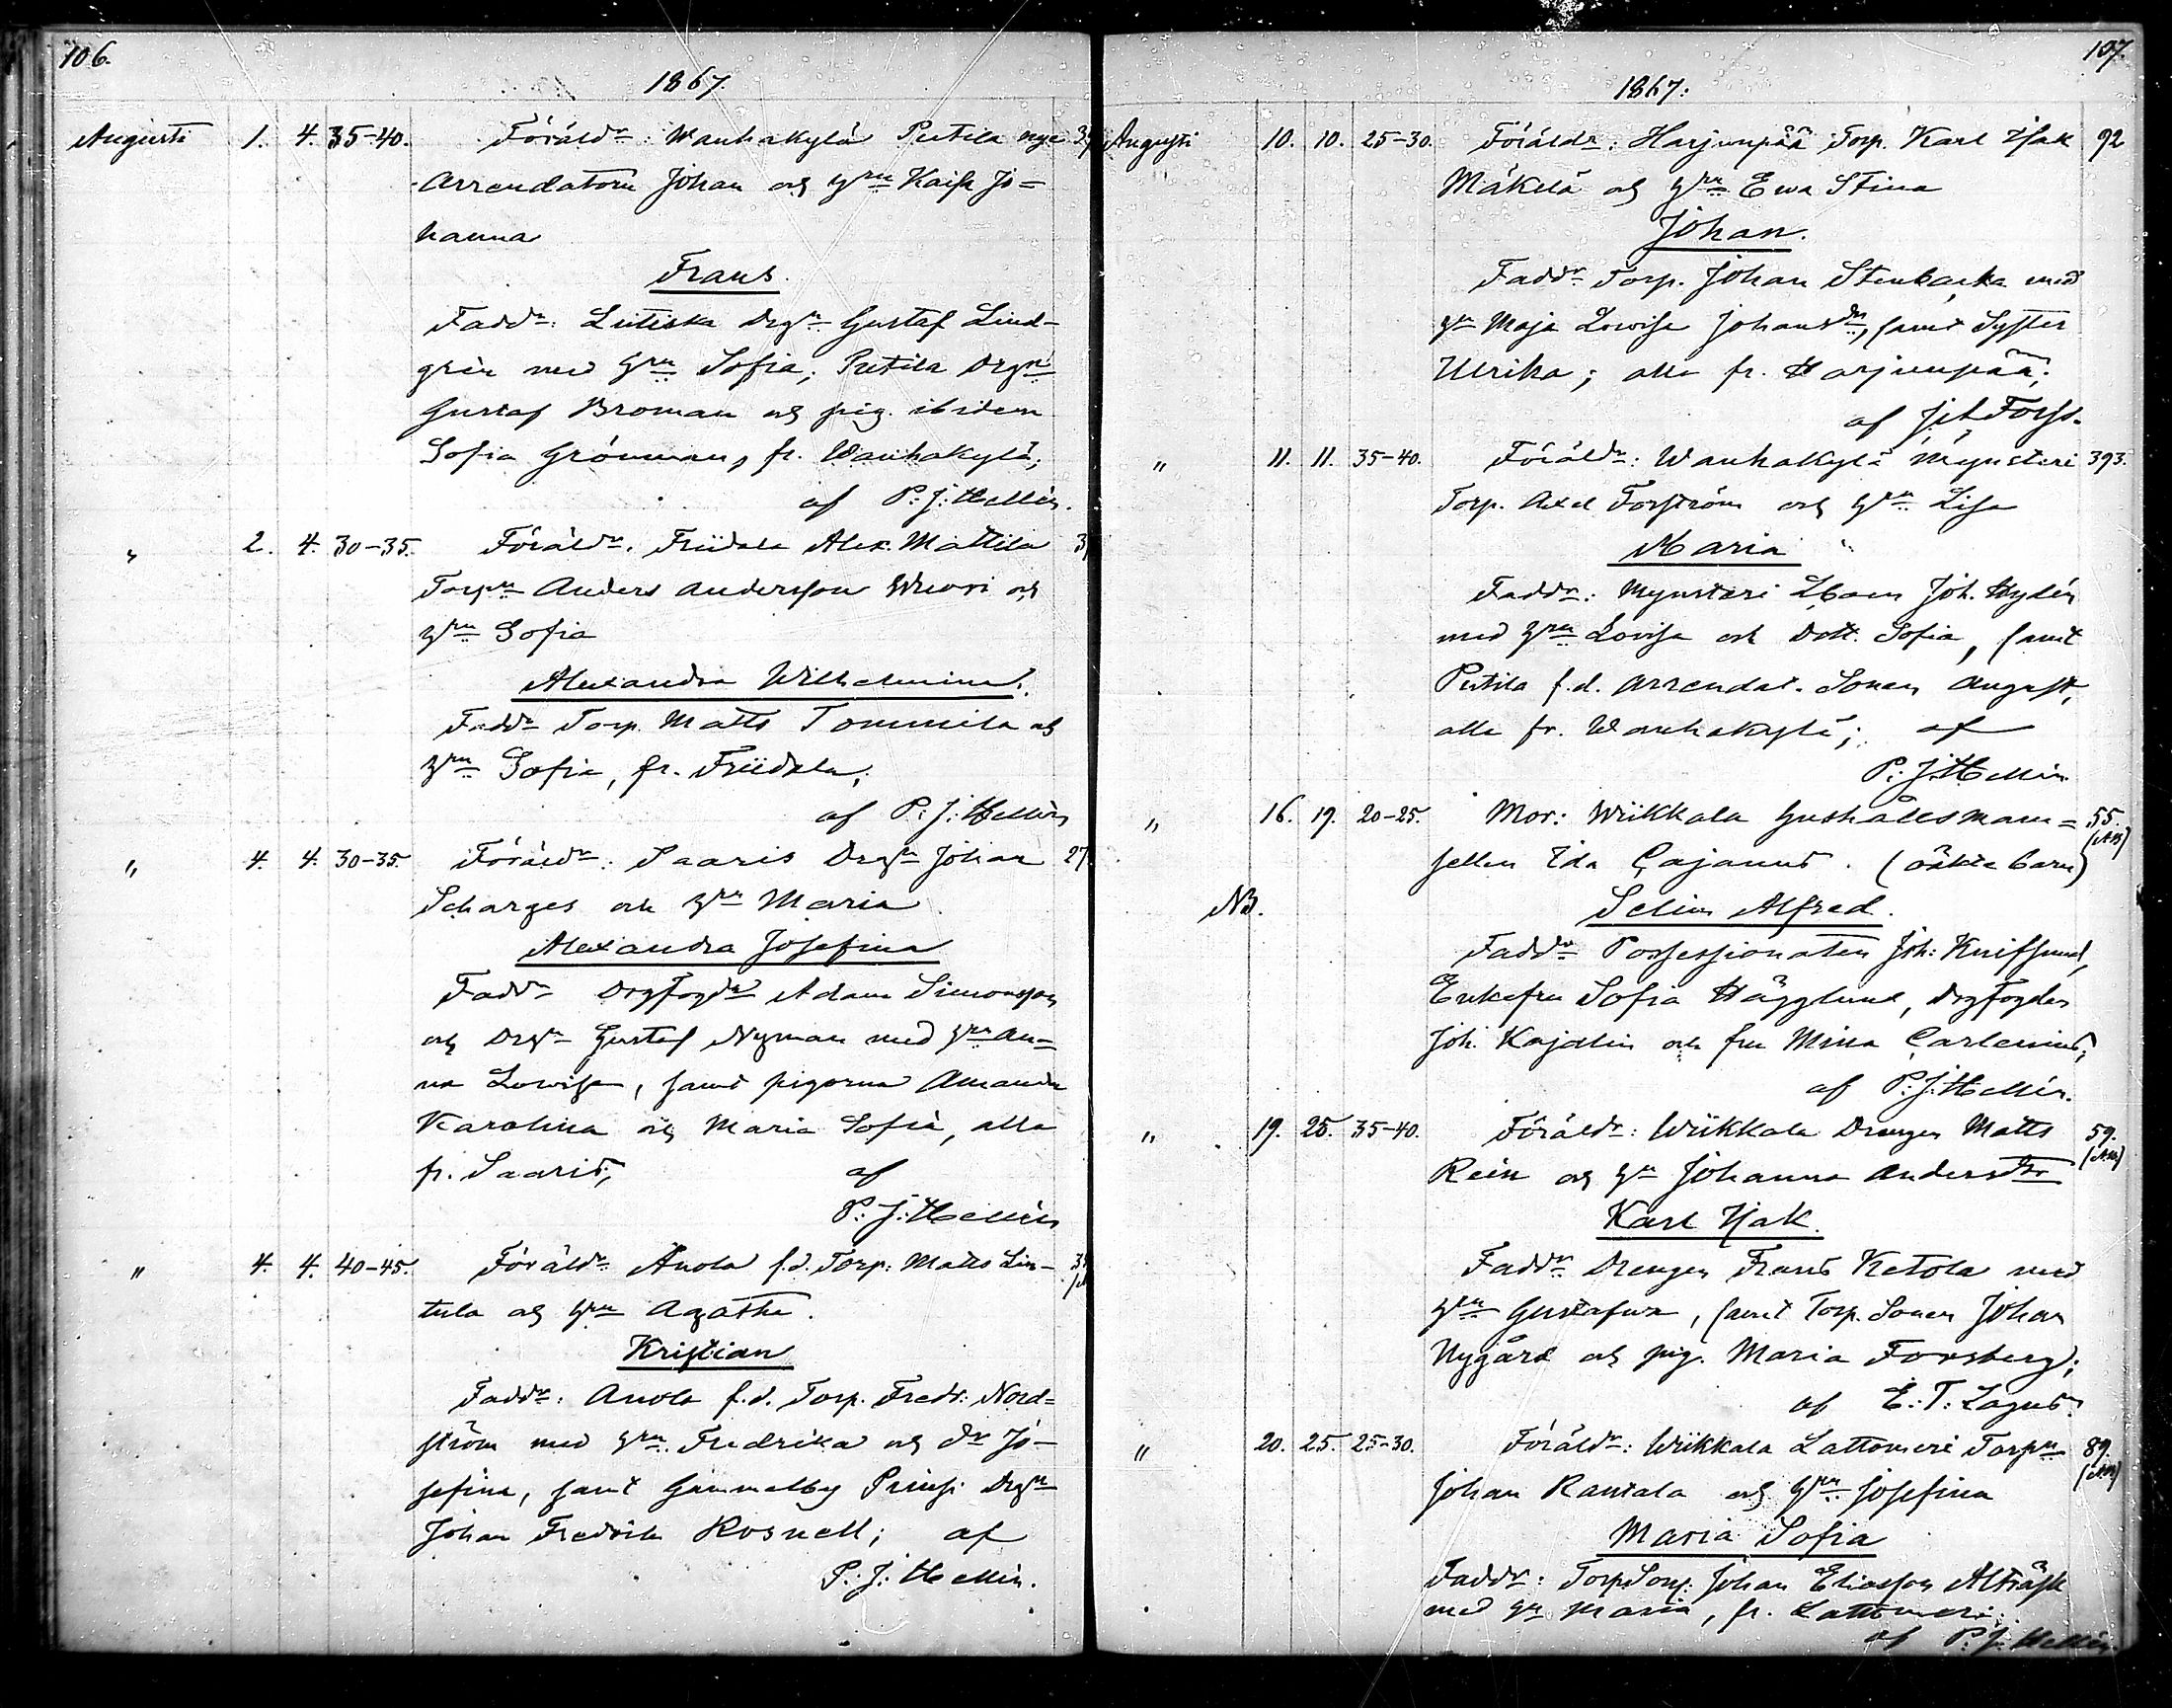 106.
1867.
Augusti 1. 4. 35-40. Föräldr: Wanhakylä Putila nye
Arrendatorn Johan och hru Kaisa Jo=
hanna
Frans.
Faddr: Drgn Gustaf Lind-
grén med hru Sofia; Putila Drgn
Gustaf Broman och pig. ibidem
Sofia Grönman, fr. Wanhakylä;
af P: J: Hellén.
" 2. 4. 30-35. Föräldr. Friidala Alex. Mattila
Torpn Anders Andersson Wuori och
hru Sofia
Alexandra Wilhelmina.
Faddr Torp. Matts Tommila och
hru Sofia, fr. Friidala;
af P: J: Hellén
" 4. 4. 30-35. Föräldr: Saaris Drgn Johan 27
Scharges och hru Maria
Alexandra Josefina
Faddr Drgfogdn Adam Simonsson
och Drgn Gustaf Nyman med hru An=
na Lowisa, samt pigorna Amanda
Karolina och Maria Sofia, alla
fr. Saaris; af
P: J: Hellén
" 4. 4. 40-45. Föräldr Anola f.d. Torp: Matts Lin-
tula och hru Agatha.
Kristian
Faddr: Anola f.d. Torp. Fredr: Nord=
ström med hru Fredrika och dr Jo-
sefina, samt Gammelby Prinsi Drgn
Johan Fredrik Rosnell; af
P: J: Hellén.
107.
1867:
Augusti 10. 10. 25-30. Föräldr: Harjunpää Torp. Karl Isak 92
Mäkelä och hru Ewa Stina
Johan.
Faddr Torp. Johan Stenbacka med
hu Maja Lowisa Johansdr, samt Syster
Ulrika; alla fr. Harjunpää;
af Forss.
" 11. 11. 35-40. Föräldr: Wanhakylä Mynsteri 393.
Torp. Axel Forström och hru Lisa
Maria
Faddr: Mynsteri Joh. Nydén
med hru Lovisa och Dott. Sofia, samt
Putila f.d. Arrendat. Sonen August,
alla fr. Wanhakylä; af
P: J: Hellén
" 16. 19. 20-25. Mor: Wiikkala Hushållsmam= 55.
sellen Ida Cajanus. (oäkta barn)
NB. Selim Alfred.
Faddr Possessionaten Joh: Knifsund,
Enkefru Sofia Hägglund, Drgfogden
Joh. Kajdlin och fru Mina Carlenius;
af P: J: Hellén.
" 19. 25. 35-40. Föräldr: Wiikkala Drengen Matts 59.
Rein och hu Johanna Andersdtr
Karl Isak.
Faddr Drengen Frans Ketola med
hru Gustafwa, samt Torp. Sonen Johan
Nygård och pig. Maria Forsberg;
af E: T: Lagus.
" 20. 25. 25-30. Föräldr: Wiikkala Lattomeri Torpn 89.
Johan Rantala och hru Josefina
Maria Sofia
Faddr: Johan Eliasson Alträsk
med hu Maria, fr. Lattomeri.
af P: J: Hellén.